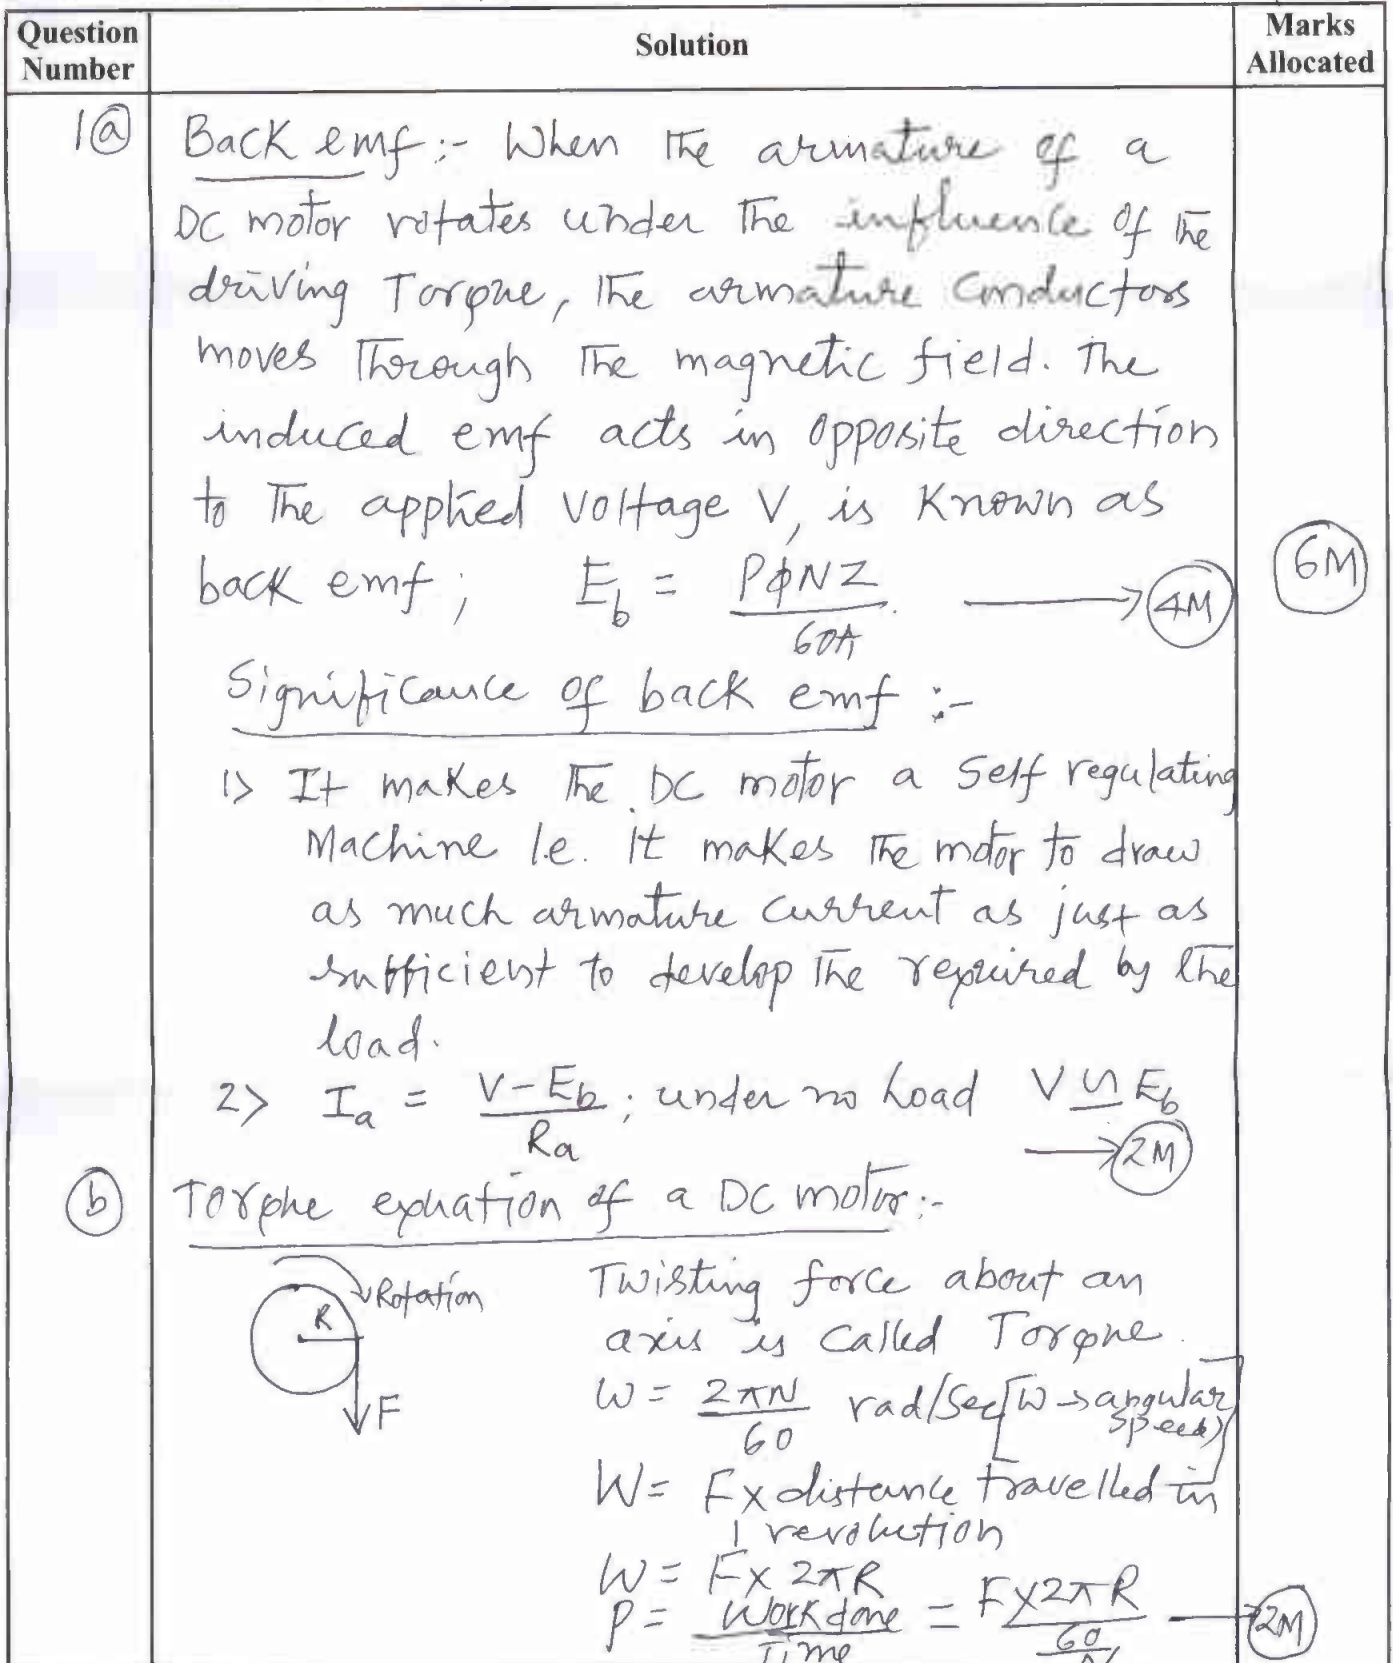 Question Number
Solution
Marks Allocated
1(a)
Back emf :- When the armature of a
DC motor rotates under the influence of the
driving Torque, the armature Conductors
moves Through The magnetic field. The
induced emf acts in opposite direction
to The applied voltage V, is Known as
back emf ; E_b = PϕNZ / 60A → 4M
6M
Significance of back emf :-
1> It makes the DC motor a Self regulating
Machine I.e. It makes the motor to draw
as much armature current as just as
sufficient to develop the required by the
load.
2> I_a = (V - E_b) / R_a ; under no Load V ≌ E_b
→ 2M
(b) Torque equation of a DC motor :-
Rotation
R
F
Twisting force about an
axis is Called Torque.
ω = 2πN / 60 rad/Sec [ω → angular speed]
W = F x distance travelled in
1 revolution
W = F x 2πR
P = Work done / Time = F x 2πR / (60/N) → 2M